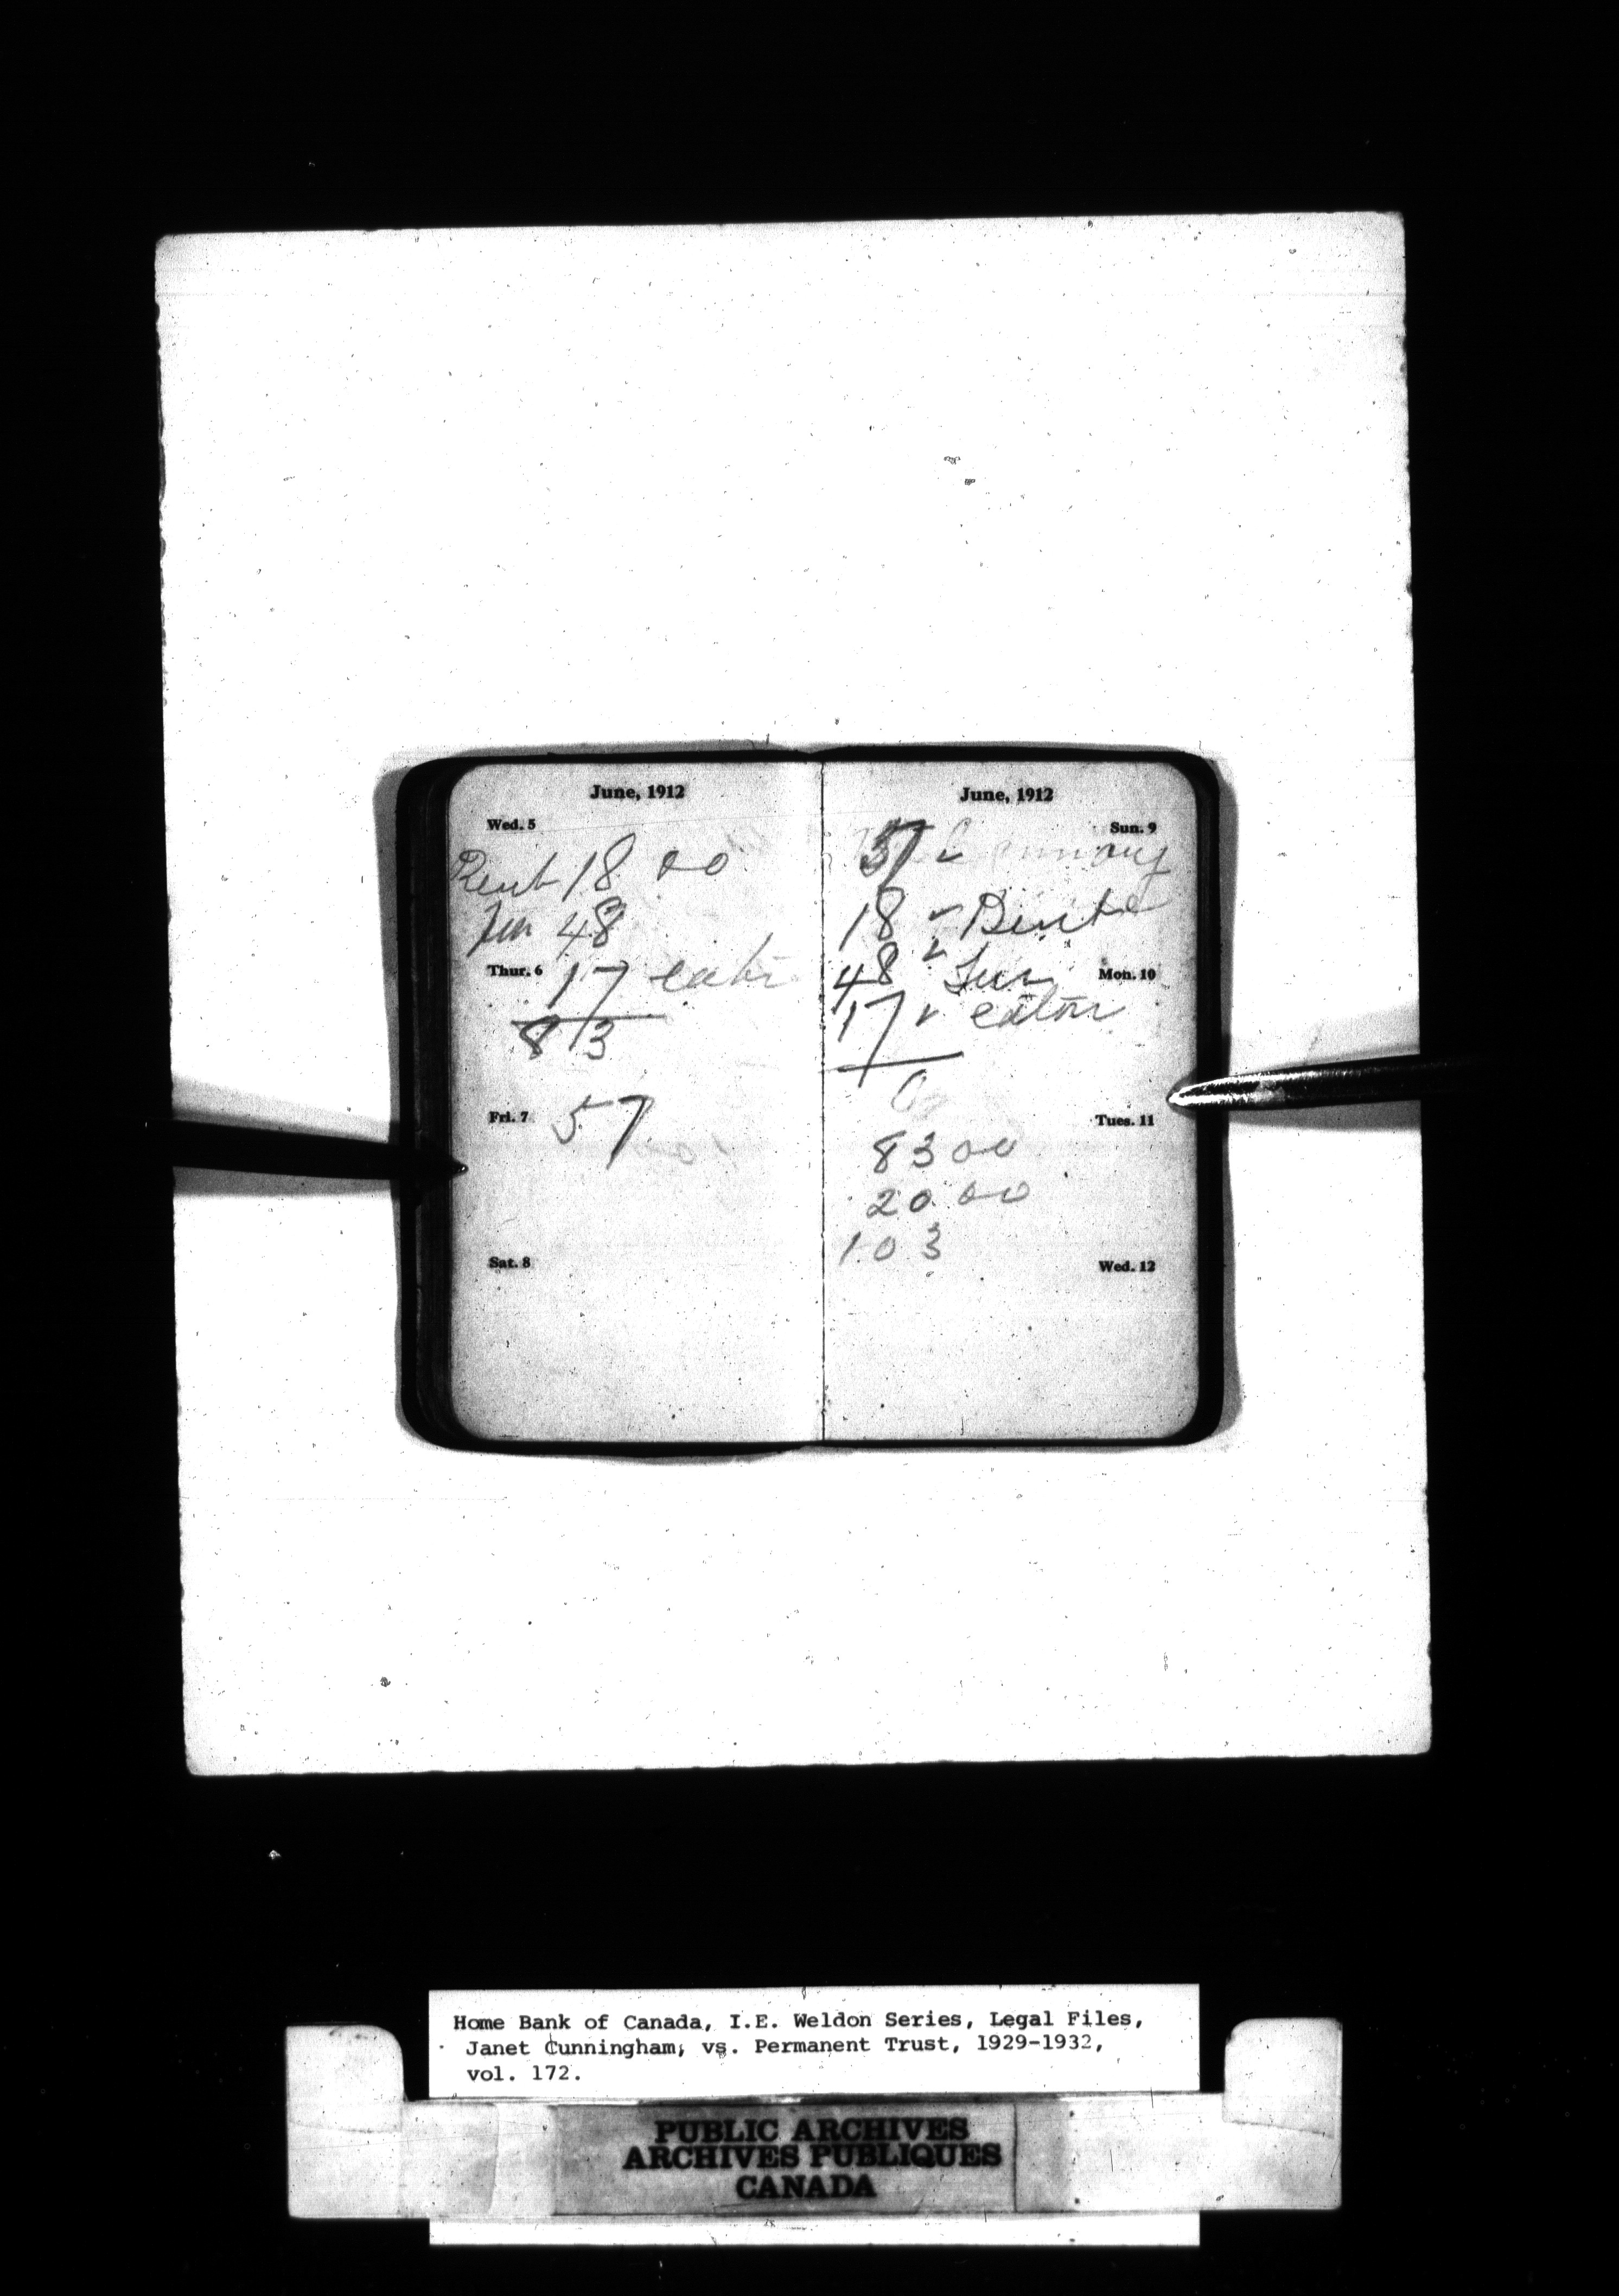 June, 1912
Wed. 5
Rent 18 00
Fur 48
Thur. 6
17 eaton
83
Fri. 7
57
Sat. 8
June, 1912
Sun. 9
37 ✓
18 ✓ Rent
48 ✓ Fur
Mon. 10
17 ✓ eaton
Tues. 11
83 00
20 00
103
Wed. 12
Home Bank of Canada, I.E. Weldon Series, Legal Files,
Janet Cunningham, vs. Permanent Trust, 1929-1932,
vol. 172.
PUBLIC ARCHIVES
ARCHIVES PUBLIQUES
CANADA